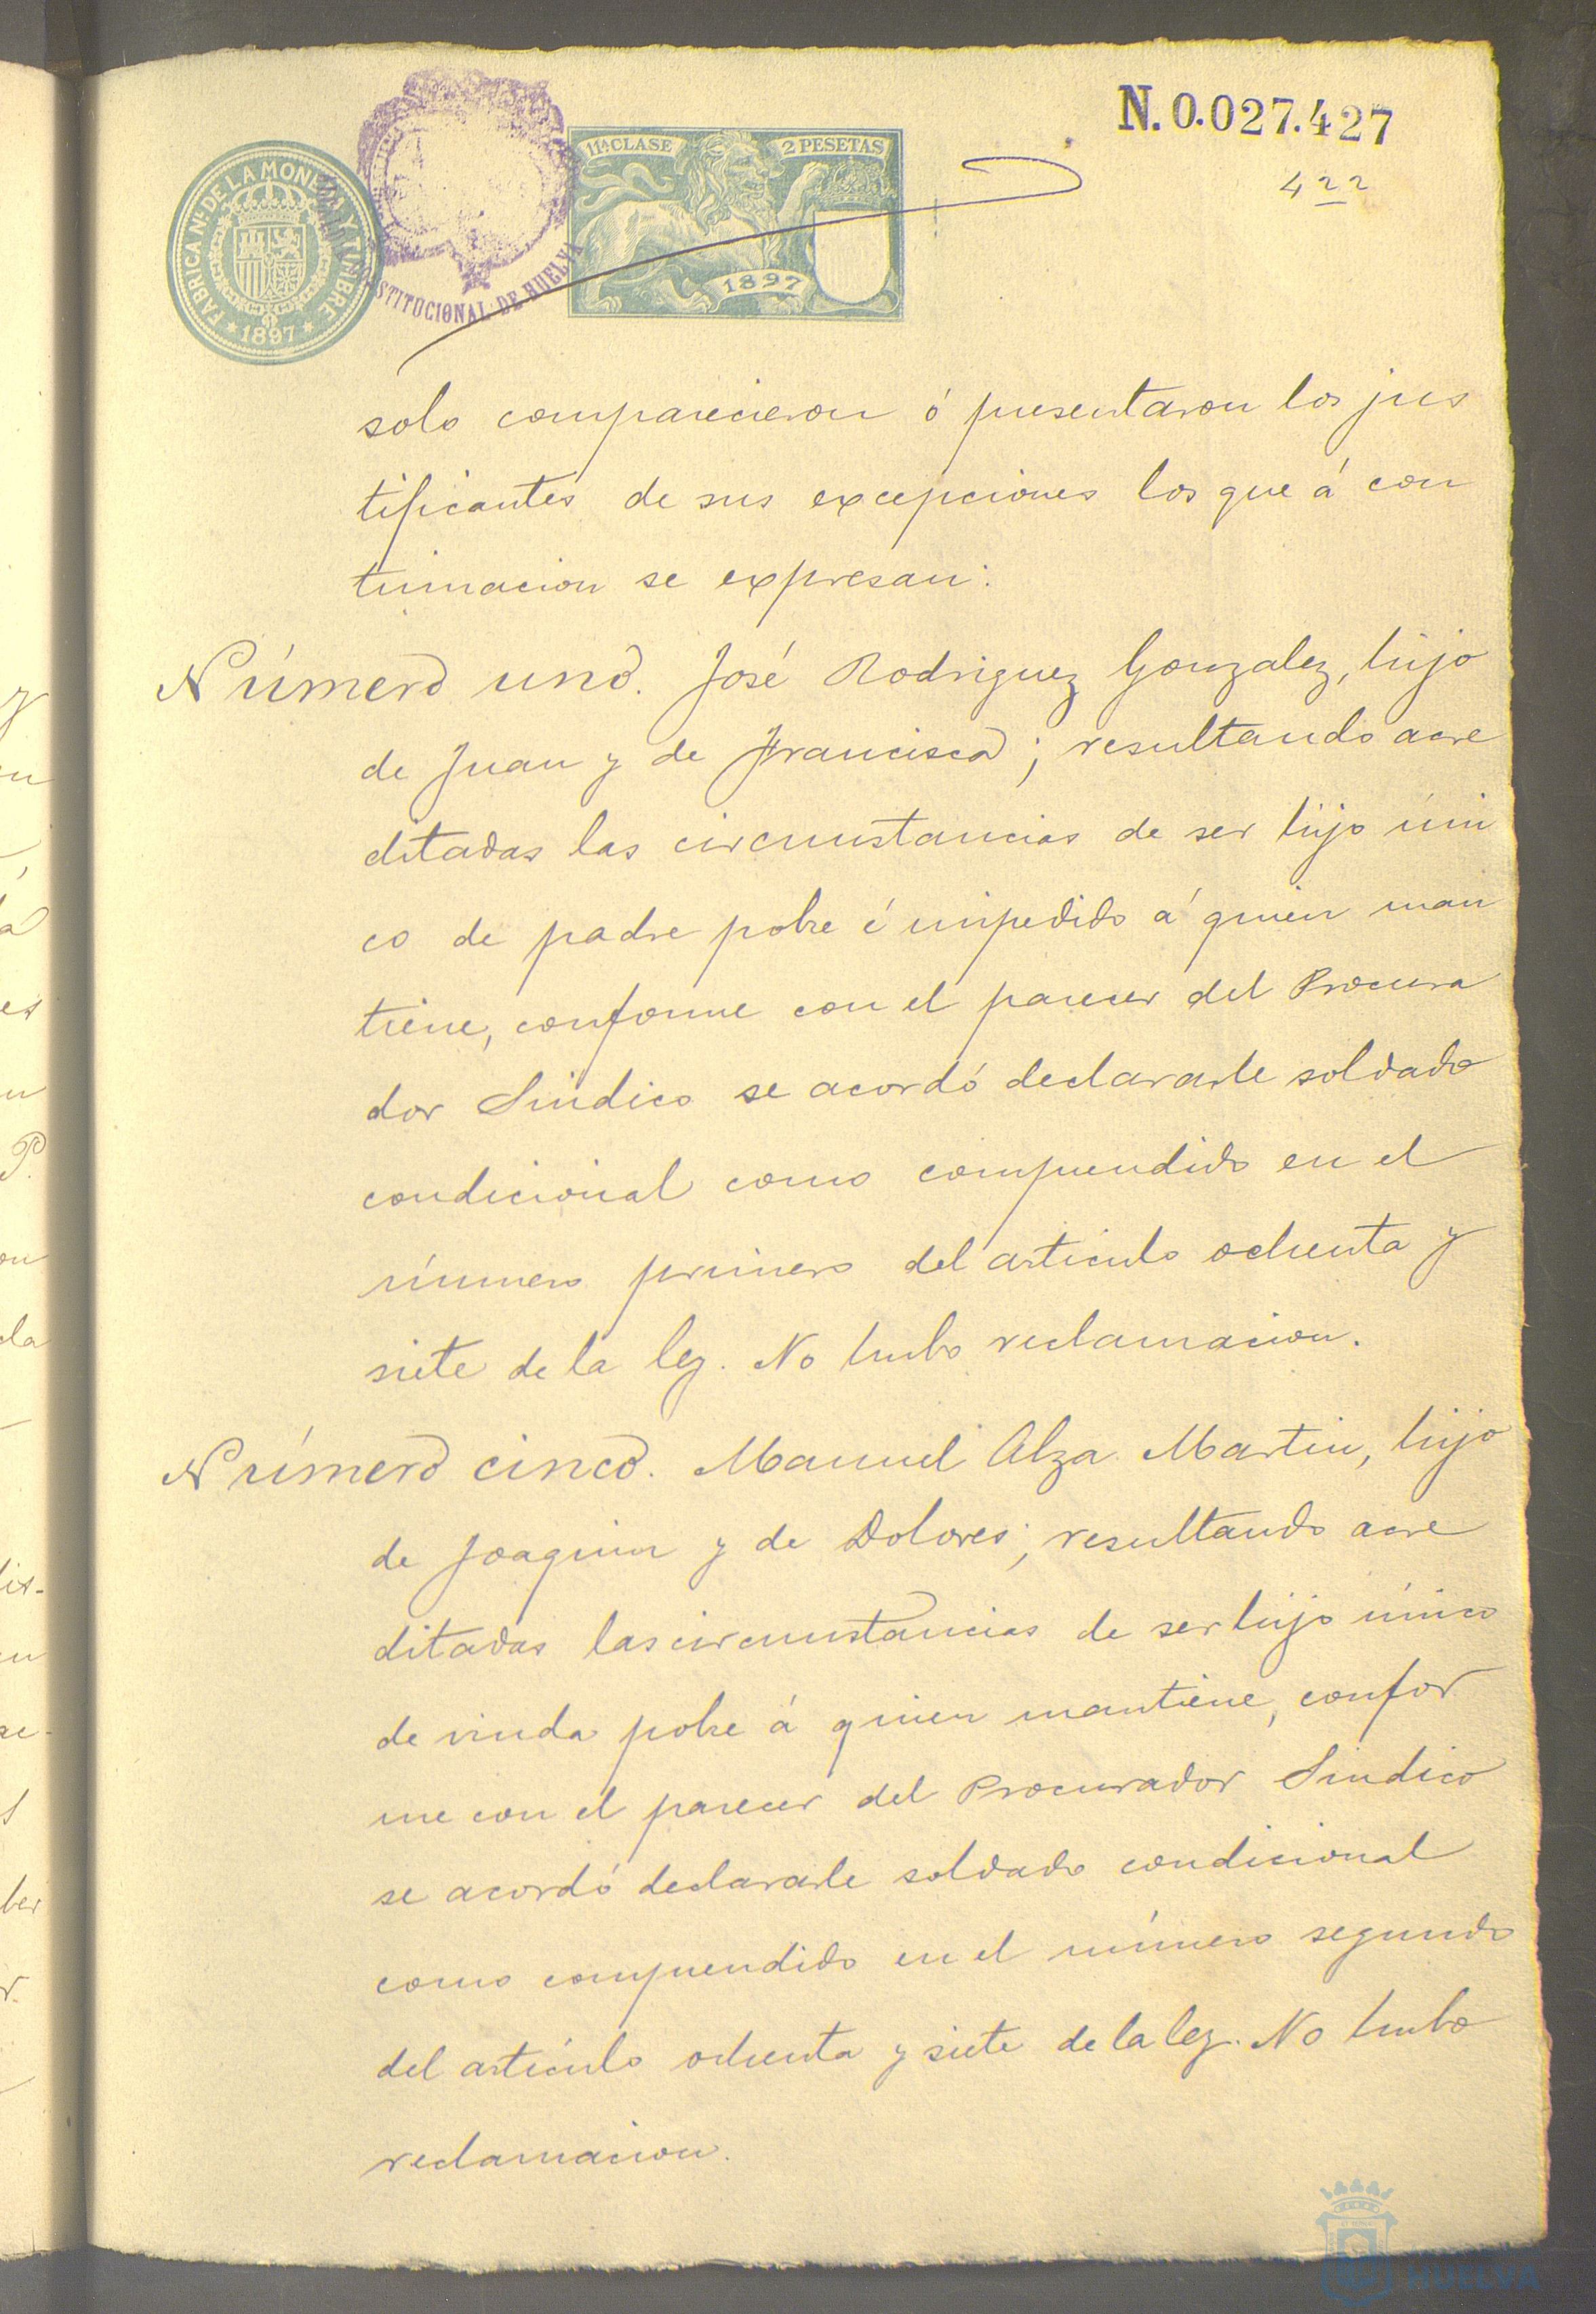 N.0.027.427
422
FABRICA NL. DE LA MONEDA Y TIMBRE
* 1897 *
STITUCIONAL DE HUELVA
11ª CLASE
2 PESETAS
1897
solo comparecieron ó presentaron los jus
tificantes de sus excepciones los que á con
tinuacion se expresan:
Número uno. José Rodriguez Gonzalez, hijo
de Juan y de Francisca; resultando acre
ditadas las circunstancias de ser hijo úni
co de padre pobre é impedido á quien man
tiene, conforme con el parecer del Procura
dor Sindico se acordó declararle soldado
condicional como comprendido en el
número primero del artículo ochenta y
siete de la ley. No hubo reclamacion.
Número cinco. Manuel Alza Martin, hijo
de Joaquin y de Dolores; resultando acre
ditadas las circunstancias de ser hijo único
de viuda pobre á quien mantiene, confor
me con el parecer del Procurador Sindico
se acordó declararle soldado condicional
como comprendido en el número segundo
del artículo ochenta y siete de la ley. No hubo
reclamacion.
HUELVA